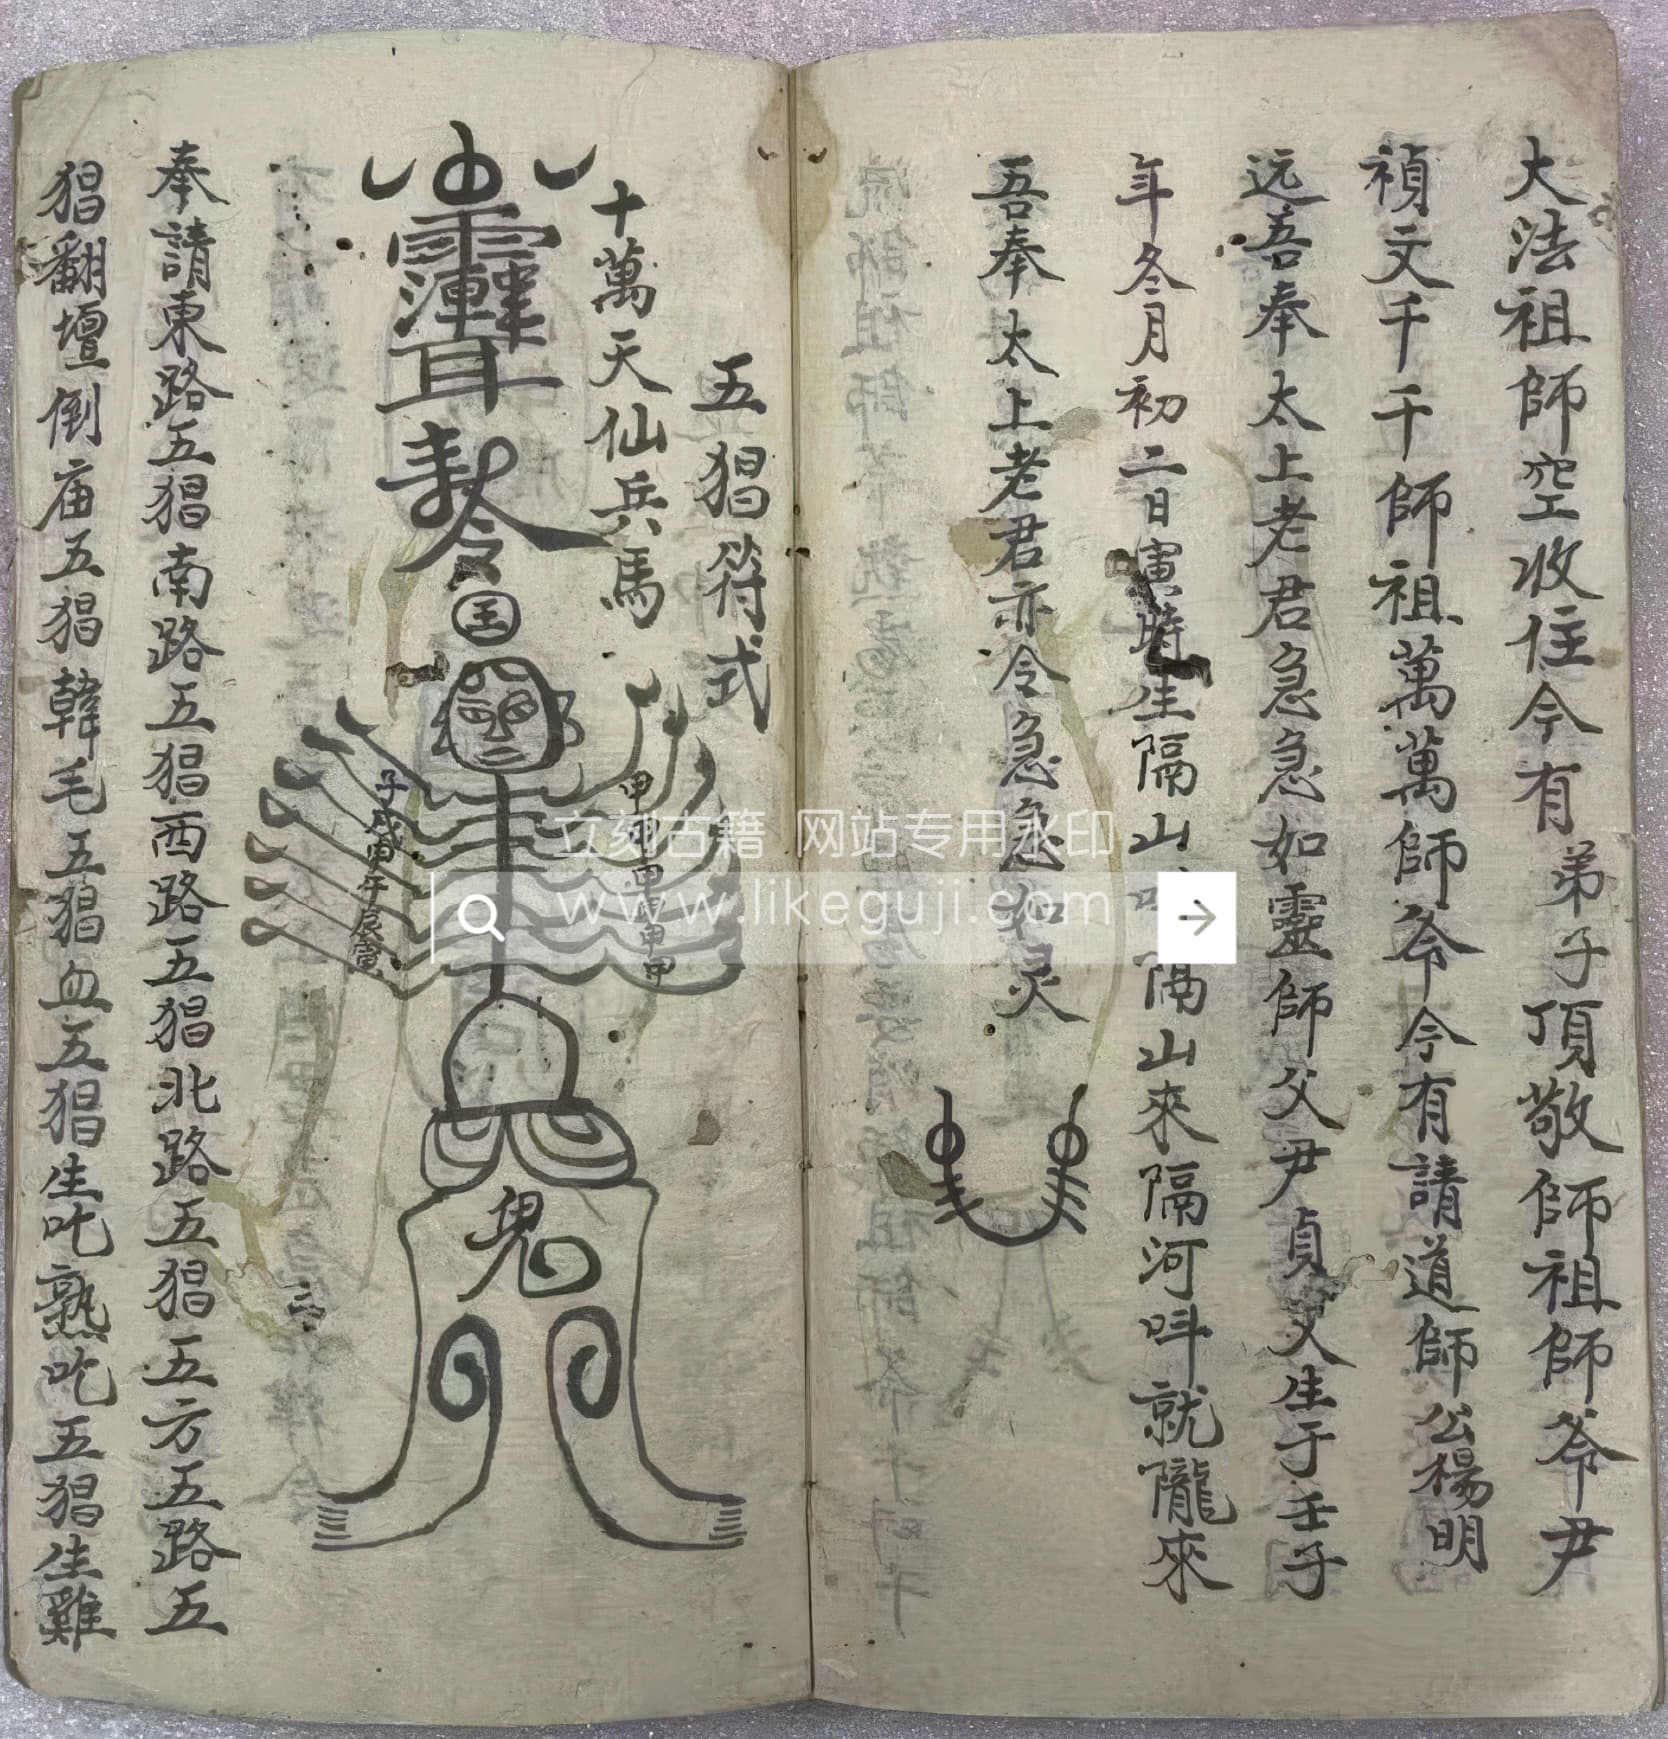 大法祖師空收住今有弟子頂敬師祖師爷尹
禎文千千師祖萬萬師爷今有請道師公楊明
远吾奉太上老君急急如靈師父尹貞文生于壬子
年冬月初二日寅時生隔山隔山來隔河呌就隴來
吾奉太上老君亦令急急如灵
五猖符式
十萬天仙兵馬
令
国
甲甲甲甲甲甲
子戌申午辰寅
鬼
奉請東路五猖南路五猖西路五猖北路五猖五方五路五
猖翻壇倒庙五猖韓毛五猖血五猖生吃熟吃五猖生雞
立刻古籍 网站专用水印
www.likeguji.com